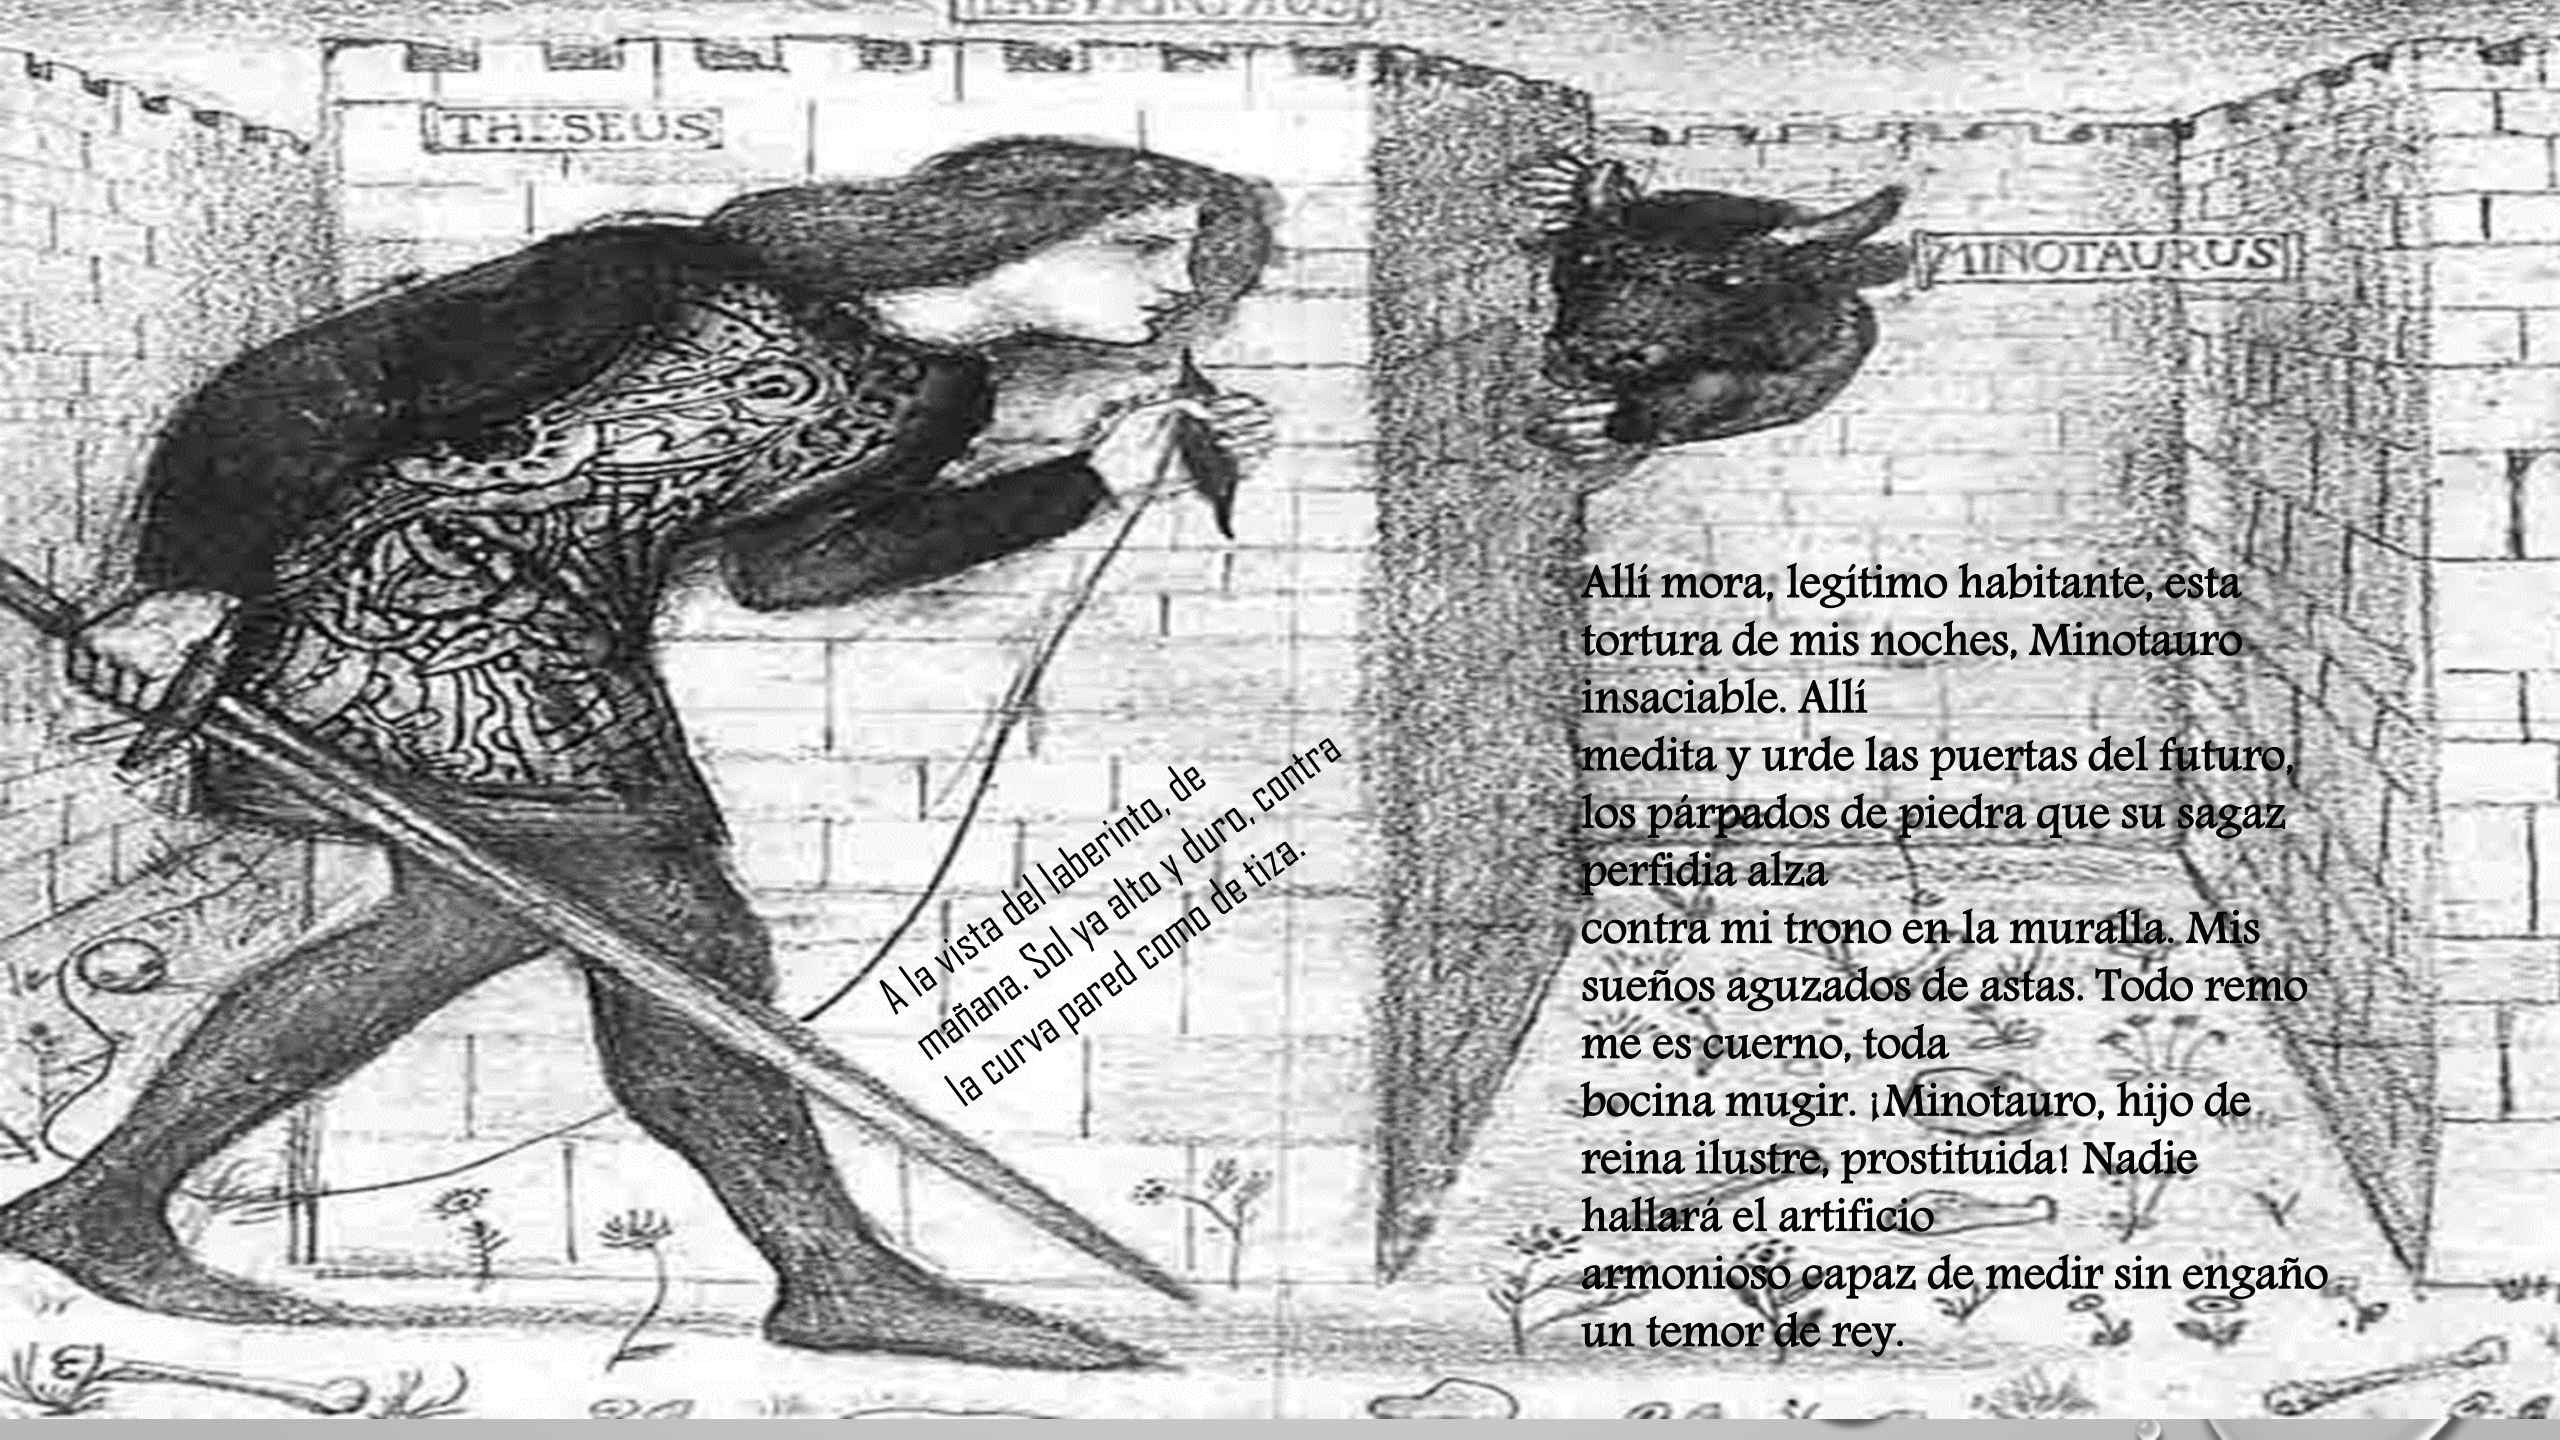 THESEUS
MINOTAURUS
A la vista del laberinto, de
mañana. Sol ya alto y duro, contra
la curva pared como de tiza.
Allí mora, legítimo habitante, esta
tortura de mis noches, Minotauro
insaciable. Allí
medita y urde las puertas del futuro,
los párpados de piedra que su sagaz
perfidia alza
contra mi trono en la muralla. Mis
sueños aguzados de astas. Todo remo
me es cuerno, toda
bocina mugir. ¡Minotauro, hijo de
reina ilustre, prostituida! Nadie
hallará el artificio
armonioso capaz de medir sin engaño
un temor de rey.